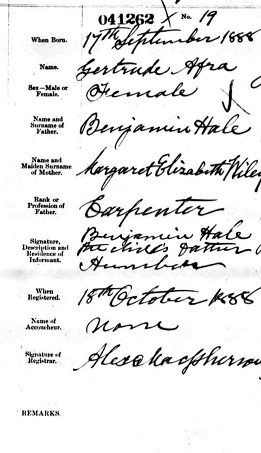 041262 No. 19
When Born. 17th September 1888
Name. Gertrude Afra
Sex—Male or Female. Female
Name and Surname of Father. Benjamin Hale
Name and Maiden Surname of Mother. Margaret Elizabeth Wiley
Rank or Profession of Father. Carpenter
Signature, Description and Residence of Informant. Benjamin Hale
the child's father
Humber
When Registered. 18th October 1888
Name of Accoucheur. None
Signature of Registrar. Alex MacPherson
REMARKS.